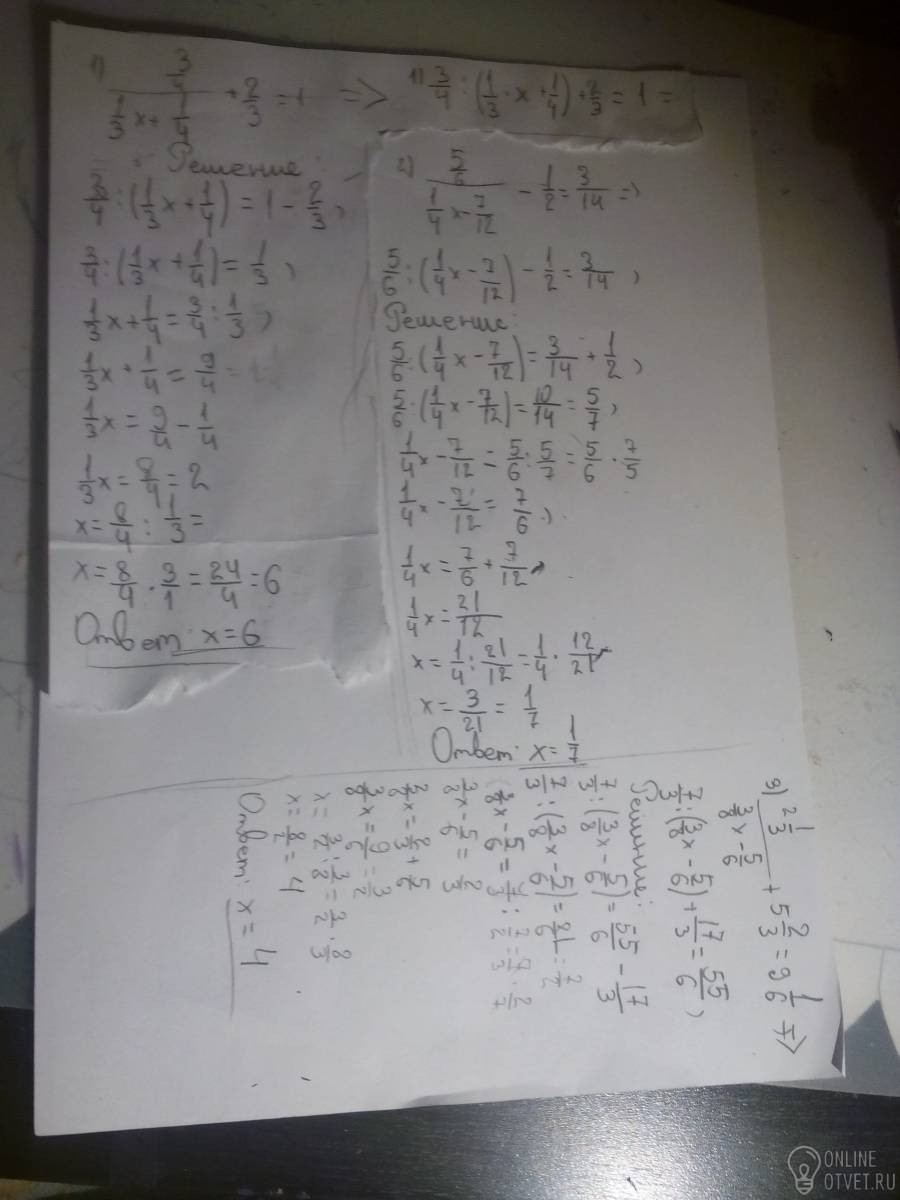 1) 3/4 / (1/3 x + 1/4) + 2/3 = 1 => 1) 3/4 : (1/3 · x + 1/4) + 2/3 = 1 =
Решение:
3/4 : (1/3 x + 1/4) = 1 - 2/3,
3/4 : (1/3 x + 1/4) = 1/3,
1/3 x + 1/4 = 3/4 : 1/3,
1/3 x + 1/4 = 9/4
1/3 x = 9/4 - 1/4
1/3 x = 8/4 = 2
x = 8/4 : 1/3 =
x = 8/4 · 3/1 = 24/4 = 6
Ответ: x = 6
2) 5/6 / (1/4 x - 7/12) - 1/2 = 3/14 =>
5/6 : (1/4 x - 7/12) - 1/2 = 3/14,
Решение:
5/6 : (1/4 x - 7/12) = 3/14 + 1/2,
5/6 : (1/4 x - 7/12) = 10/14 = 5/7,
1/4 x - 7/12 = 5/6 : 5/7 = 5/6 · 7/5
1/4 x - 7/12 = 7/6,
1/4 x = 7/6 + 7/12
1/4 x = 21/12
x = 1/4 : 21/12 = 1/4 · 12/21
x = 3/21 = 1/7
Ответ: x = 1/7
2 1/3 / (3/8 x - 5/6) + 5 2/3 = 9 1/6 =>
7/3 : (3/8 x - 5/6) + 17/3 = 55/6,
Решение:
7/3 : (3/8 x - 5/6) = 55/6 - 17/3
7/3 : (3/8 x - 5/6) = 21/6 = 7/2
3/8 x - 5/6 = 7/3 : 7/2 = 7/3 · 2/7
3/8 x - 5/6 = 2/3
3/8 x = 2/3 + 5/6
3/8 x = 9/6 = 3/2
x = 3/2 : 3/8 = 3/2 · 8/3
x = 8/2 = 4
Ответ: x = 4
ONLINE
OTVET.RU